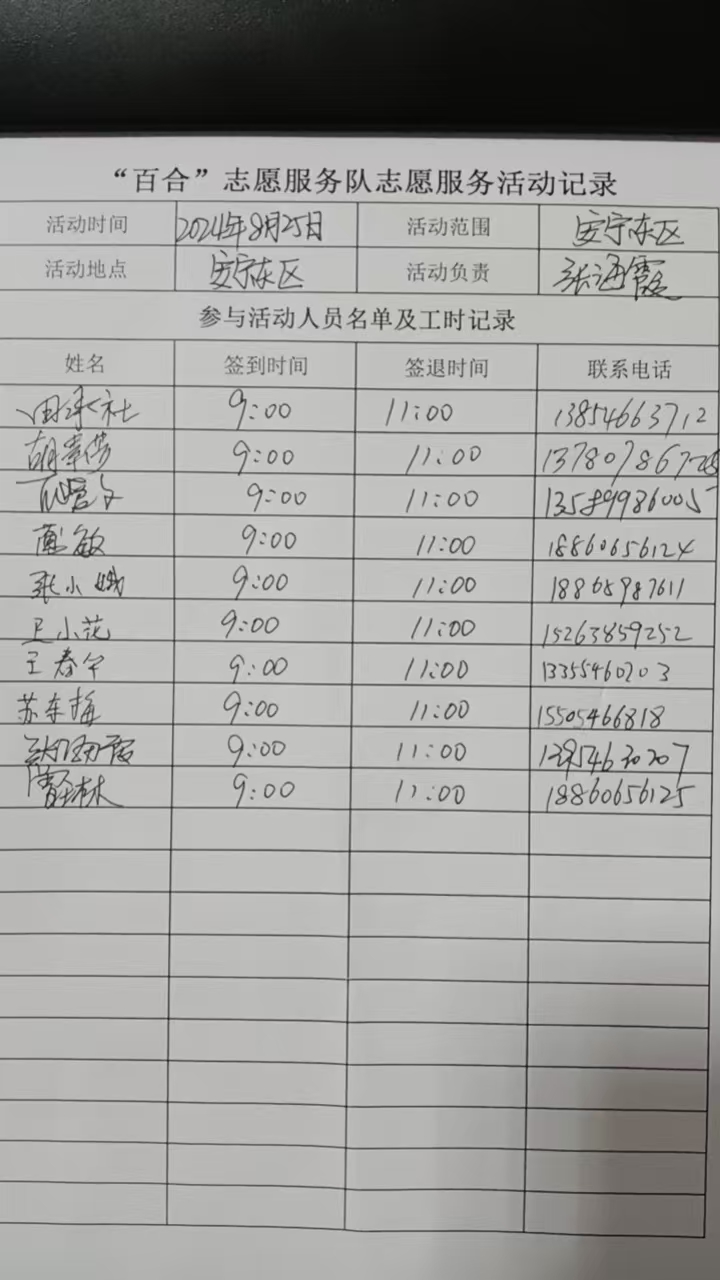 “百合”志愿服务队志愿服务活动记录
活动时间 2024年8月25日 活动范围 安宁东区
活动地点 安宁东区 活动负责 张海霞
参与活动人员名单及工时记录
姓名 签到时间 签退时间 联系电话
田承社 9:00 11:00 13854663712
胡 9:00 11:00
9:00 11:00
敏 9:00 11:00 18860656124
张小娥 9:00 11:00 18865987611
卫小花 9:00 11:00 15263859252
王春宁 9:00 11:00 13355460203
苏东梅 9:00 11:00 15505466818
9:00 11:00
林 9:00 11:00 18860656125